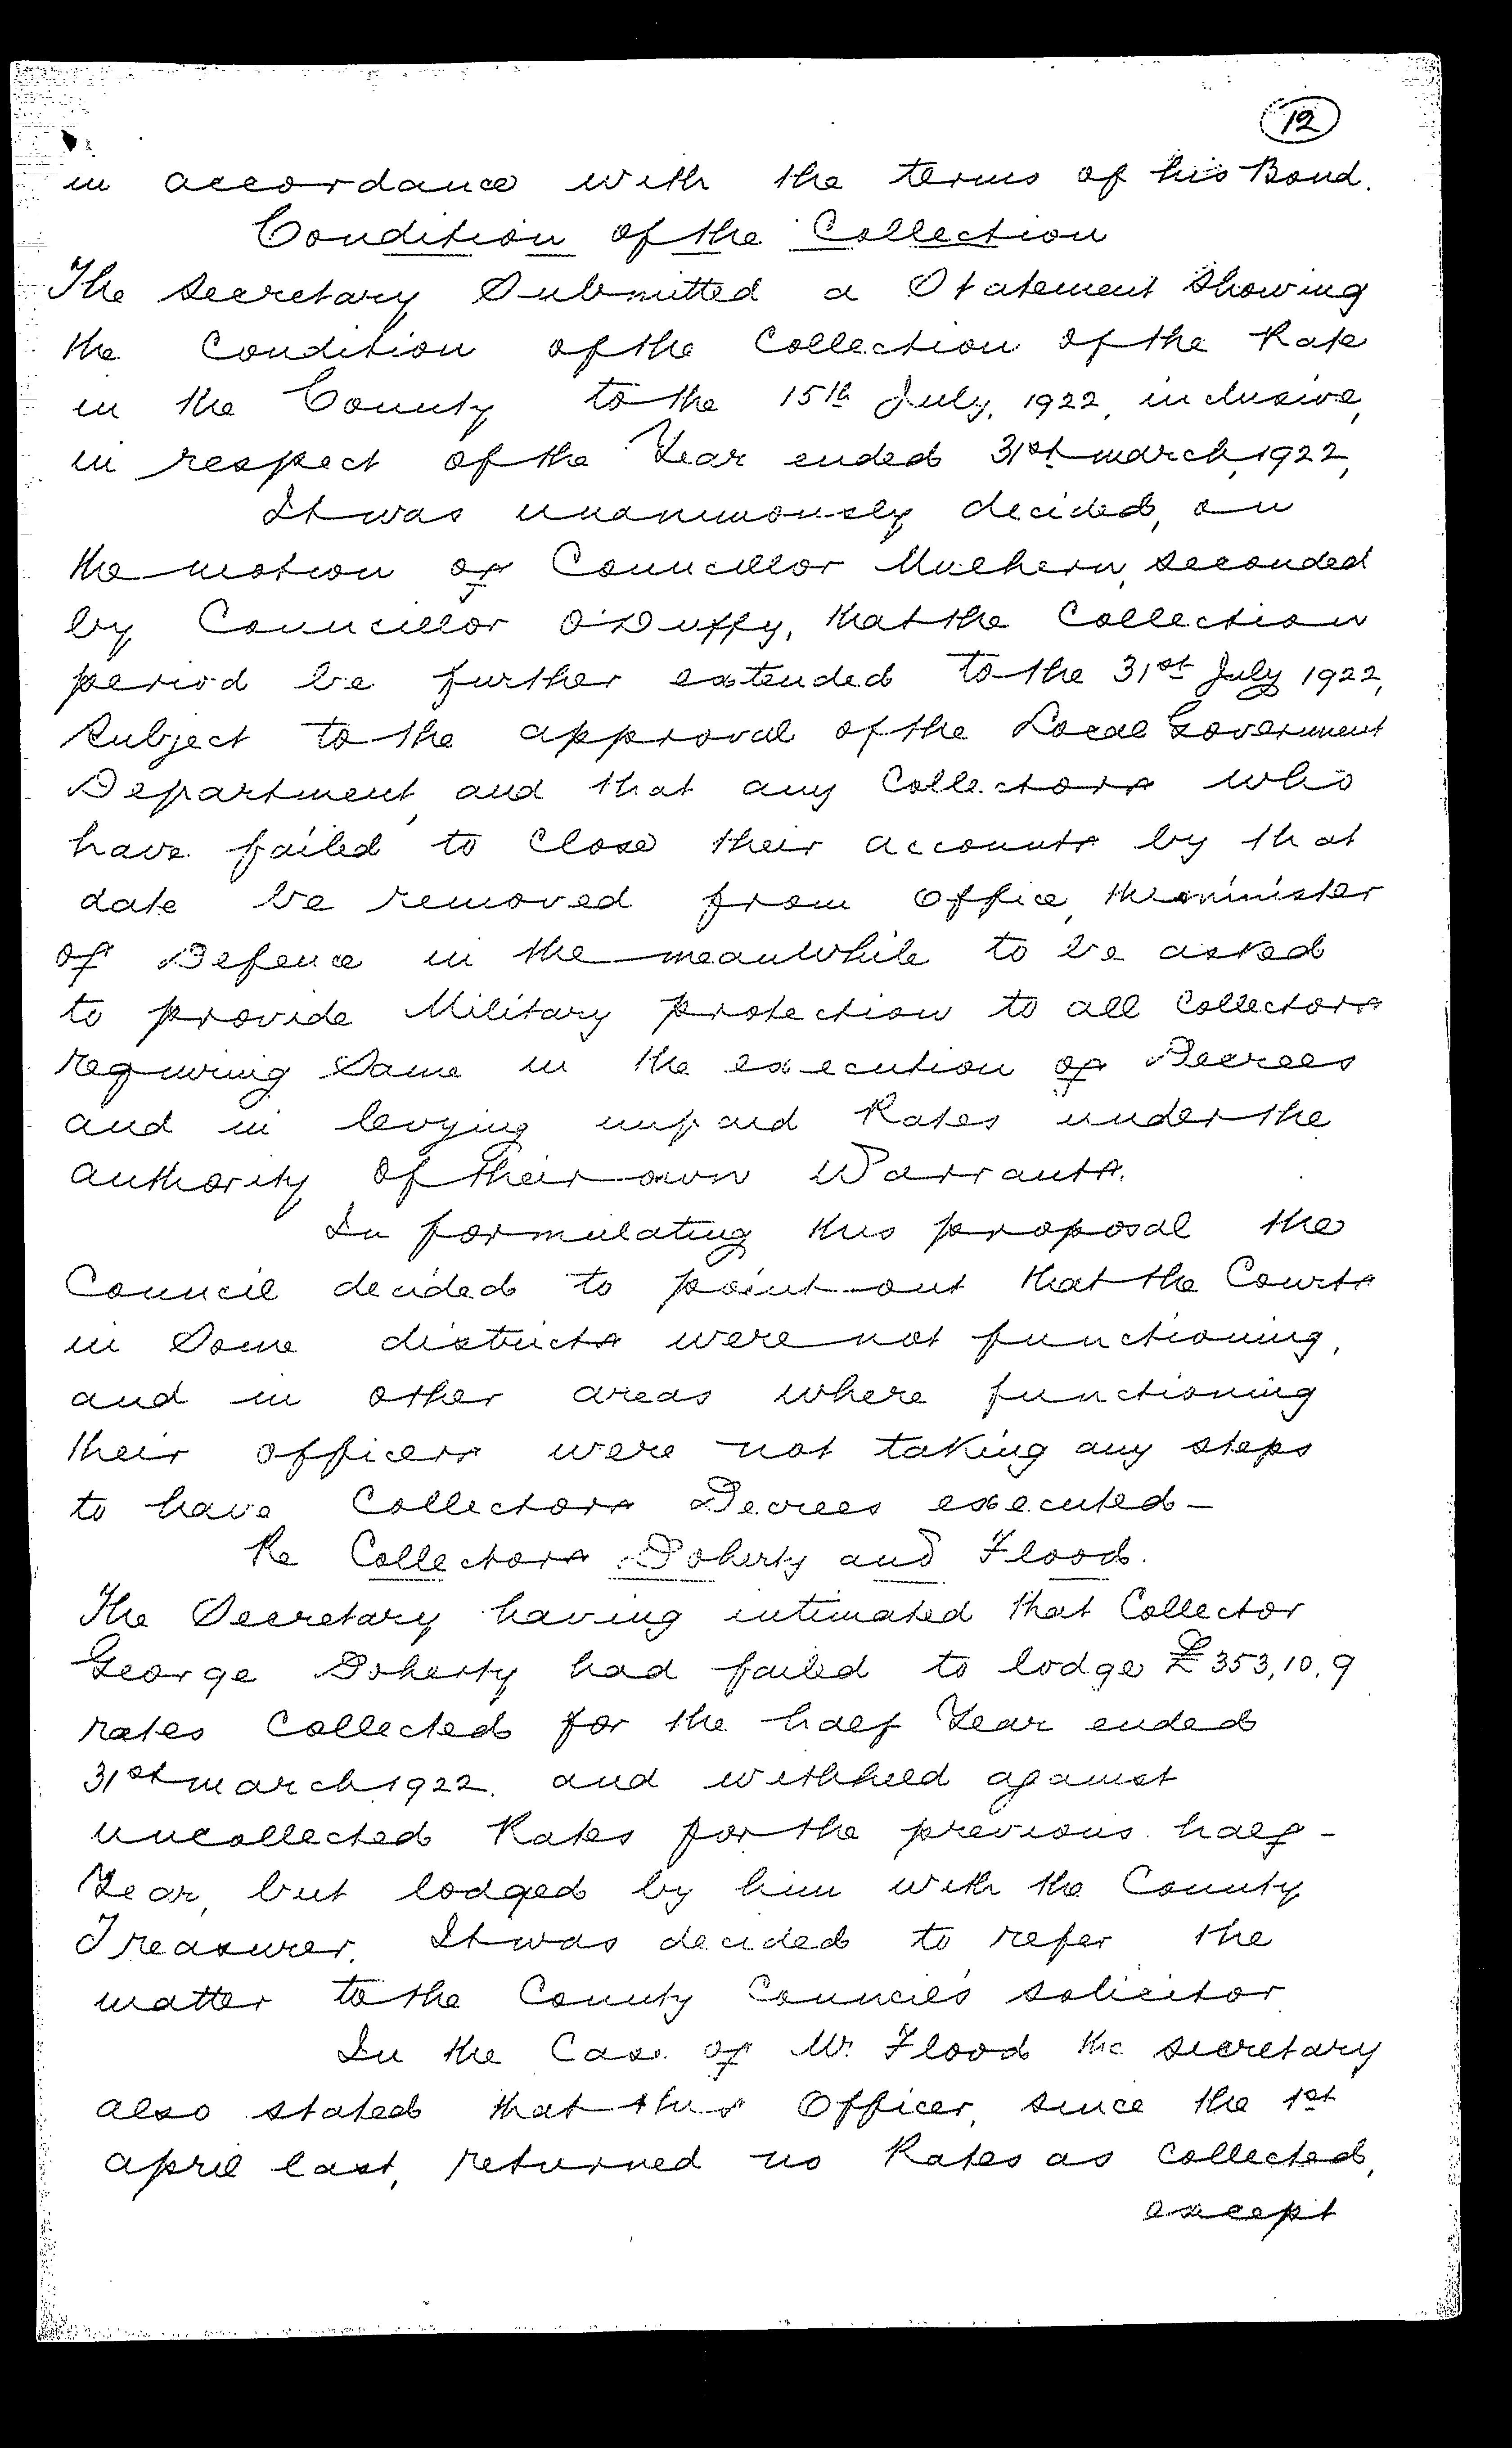 12
in accordance with the terms of his Bond.
Condition of the Collection
The Secretary Submitted a Statement Showing
the Condition of the Collection of the Rate
in the County to the 15th July, 1922, inclusive,
in respect of the Year ended 31st March, 1922,
It was unanimously decided, on
the motion of Councillor Mulhern, seconded
by Councillor O'Duffy, that the Collection
period be further extended to the 31st July 1922,
Subject to the approval of the Local Government
Department, and that any Collectors who
have failed to Close their accounts by that
date be removed from Office, the Minister
of Defence in the meanwhile to be asked
to provide Military protection to all Collectors
requiring Same in the execution of Decrees
and in levying unpaid Rates under the
authority of their own Warrants.
In formulating this proposal the
Council decided to point out that the Courts
in Some districts were not functioning,
and in other areas where functioning
their officers were not taking any steps
to have Collectors Decrees executed-
Re Collectors Doherty and Flood.
The Secretary having intimated that Collector
George Doherty had failed to lodge £353,10,9
rates Collected for the half Year ended
31st March 1922. and withheld against
uncollected Rates for the previous half-
Year, but lodged by him with the County
Treasurer. It was decided to refer the
matter to the County Council's solicitor
In the Case of Mr. Flood the secretary
also stated that this Officer, since the 1st
April last, returned no Rates as Collected,
except